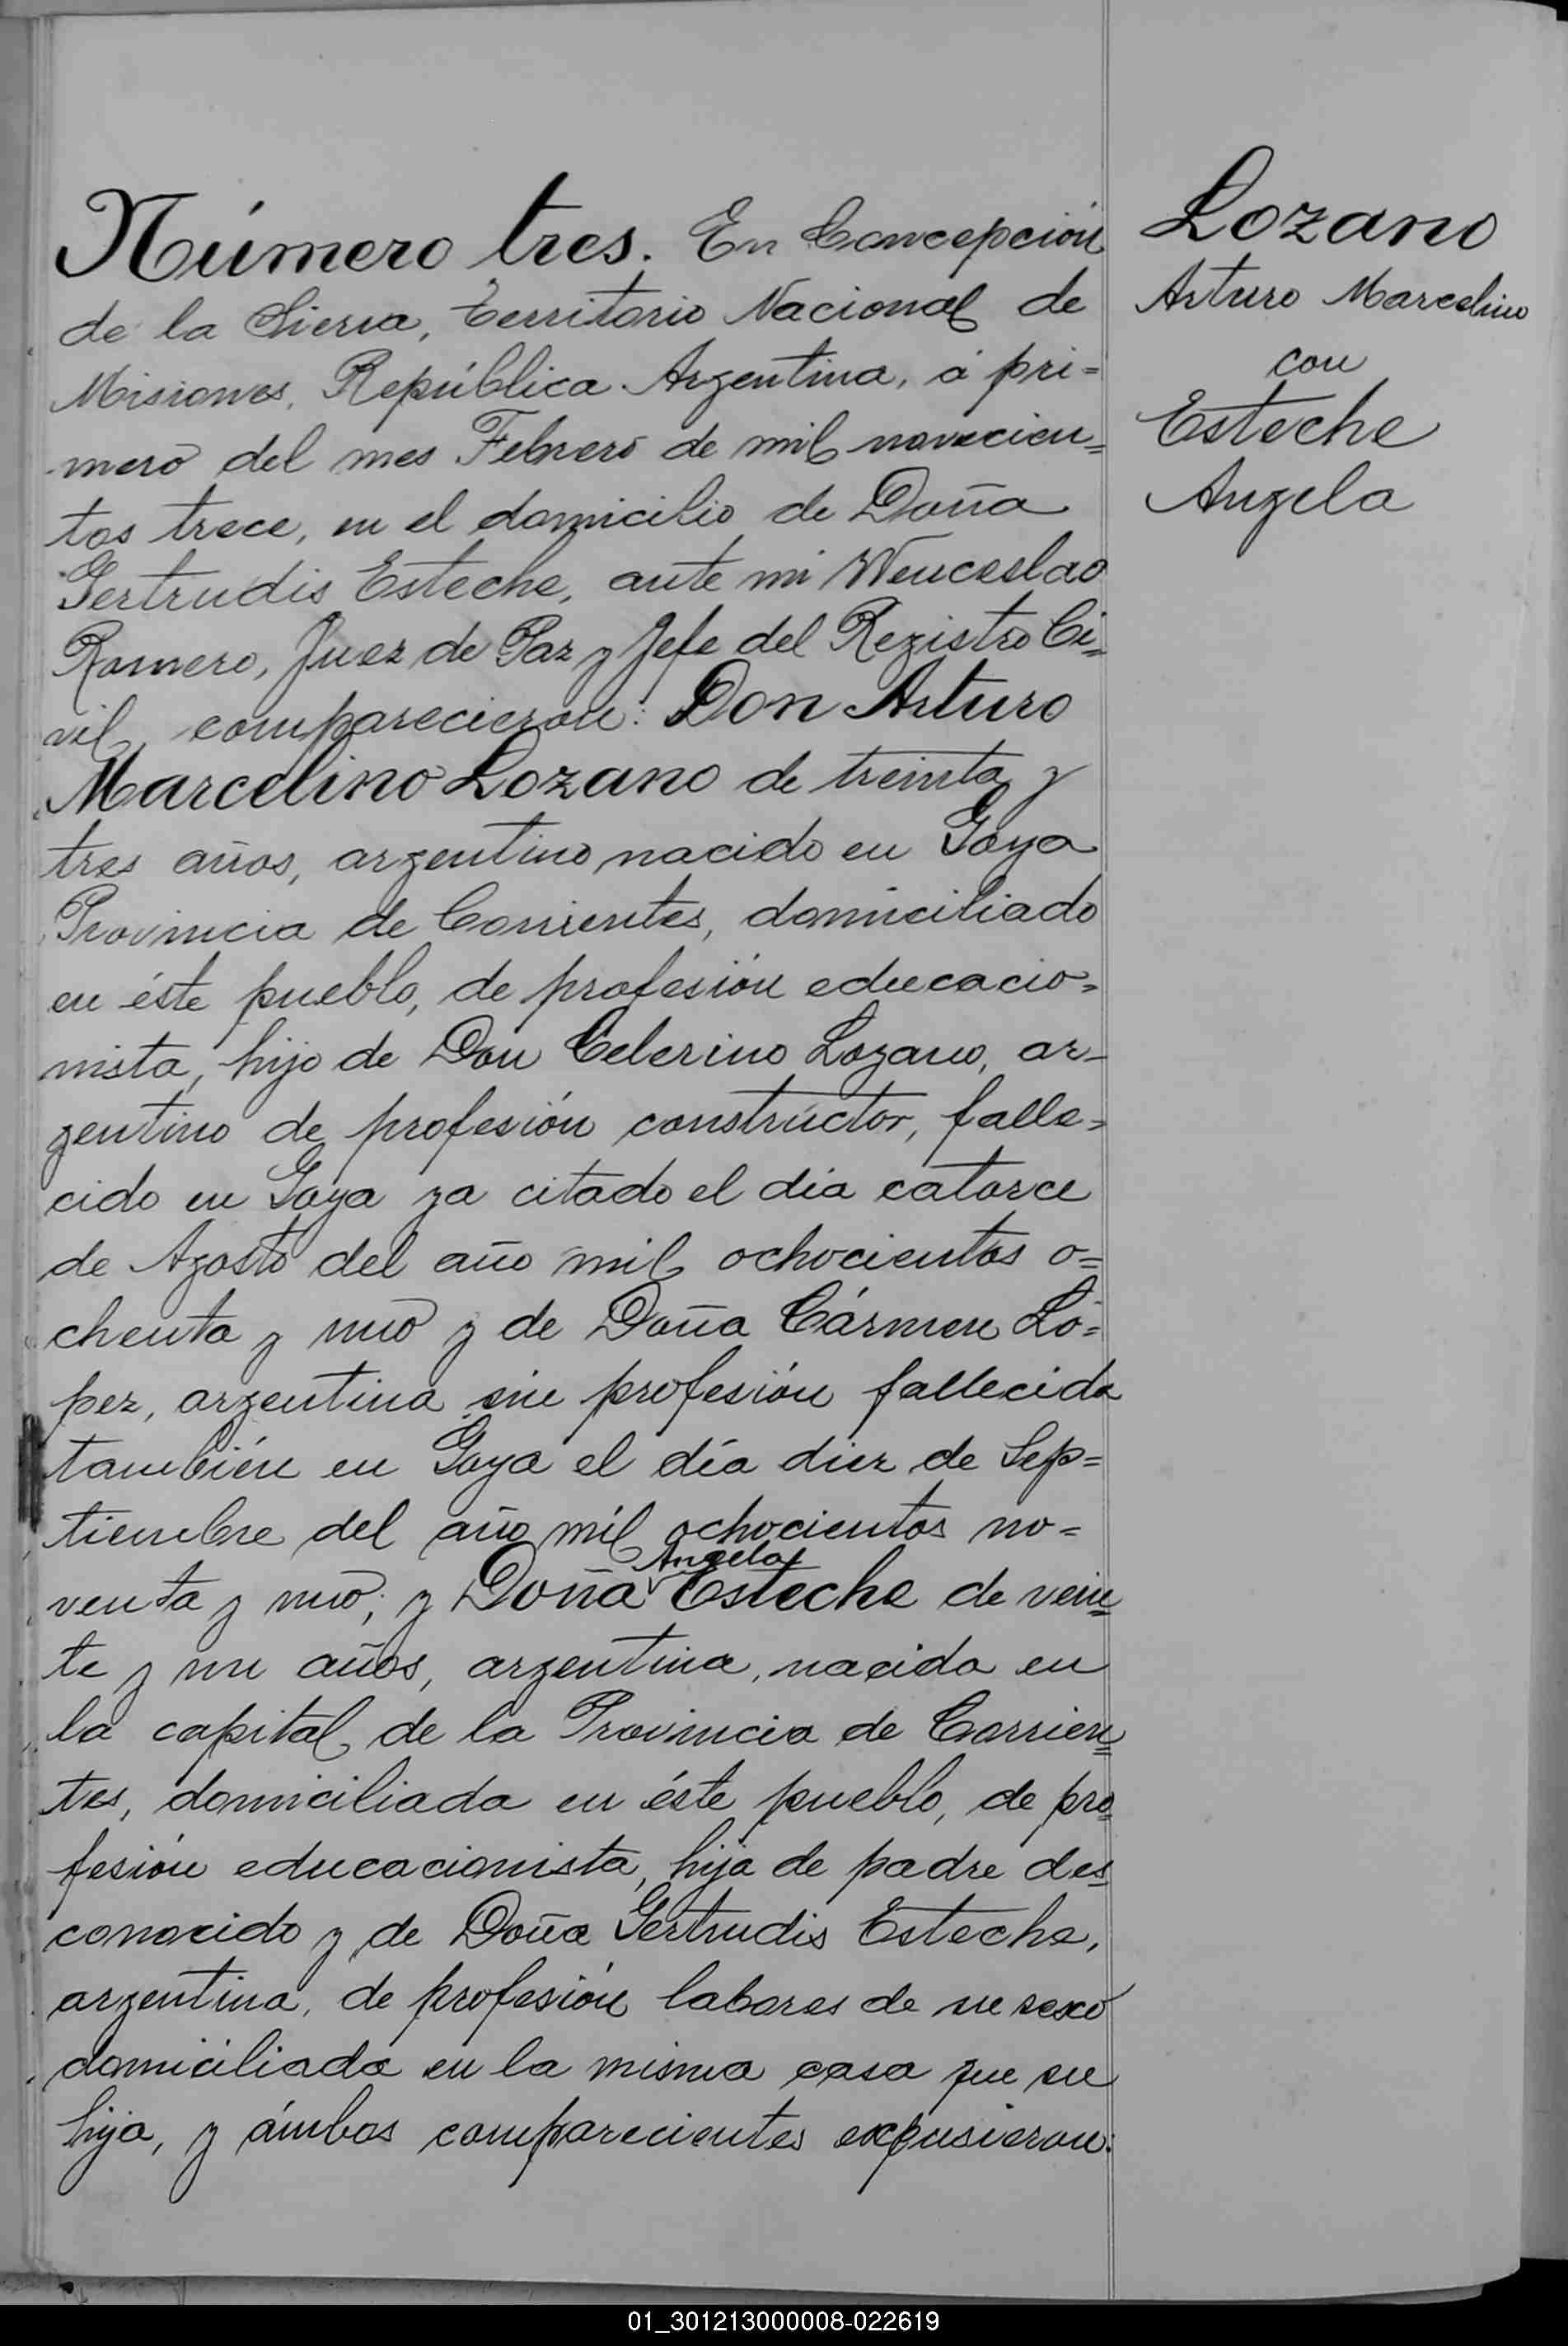 Número tres. En Concepción
de la Sierra, Territorio Nacional de
Misiones, República Argentina, á pri=
mero del mes Febrero de mil novecien=
tos trece, en el domicilio de Doña
Gertrudis Esteche, ante mi Wenceslao
Romero, Juez de Paz y Jefe del Registro Ci=
vil, comparecieron: Don Arturo
Marcelino Lozano de treinta y
tres años, argentino, nacido en Goya
Provincia de Corrientes, domiciliado
en éste pueblo, de profesión educacio=
nista, hijo de Don Celerino Lozano, ar-
gentino de profesión constructor, falle=
cido en Goya ya citado el día catorce
de Agosto del año mil ochocientos o=
chenta y uno y de Doña Cármen Ló=
pez, argentina sin profesión fallecida
también en Goya el día diez de Sep=
tiembre del año mil ochocientos no=
venta y uno; y Doña Angela Esteche de vein=
te y un años, argentina, nacida en
la capital de la Provincia de Corrien=
tes, domiciliada en éste pueblo, de pro=
fesión educacionista, hija de padre des=
conocido y de Doña Gertrudis Esteche,
argentina, de profesión labores de su sexo
domiciliada en la misma casa que su
hija, y ámbos comparecientes expusieron:
Lozano
Arturo Marcelino
con
Esteche
Angela
01_301213000008-022619